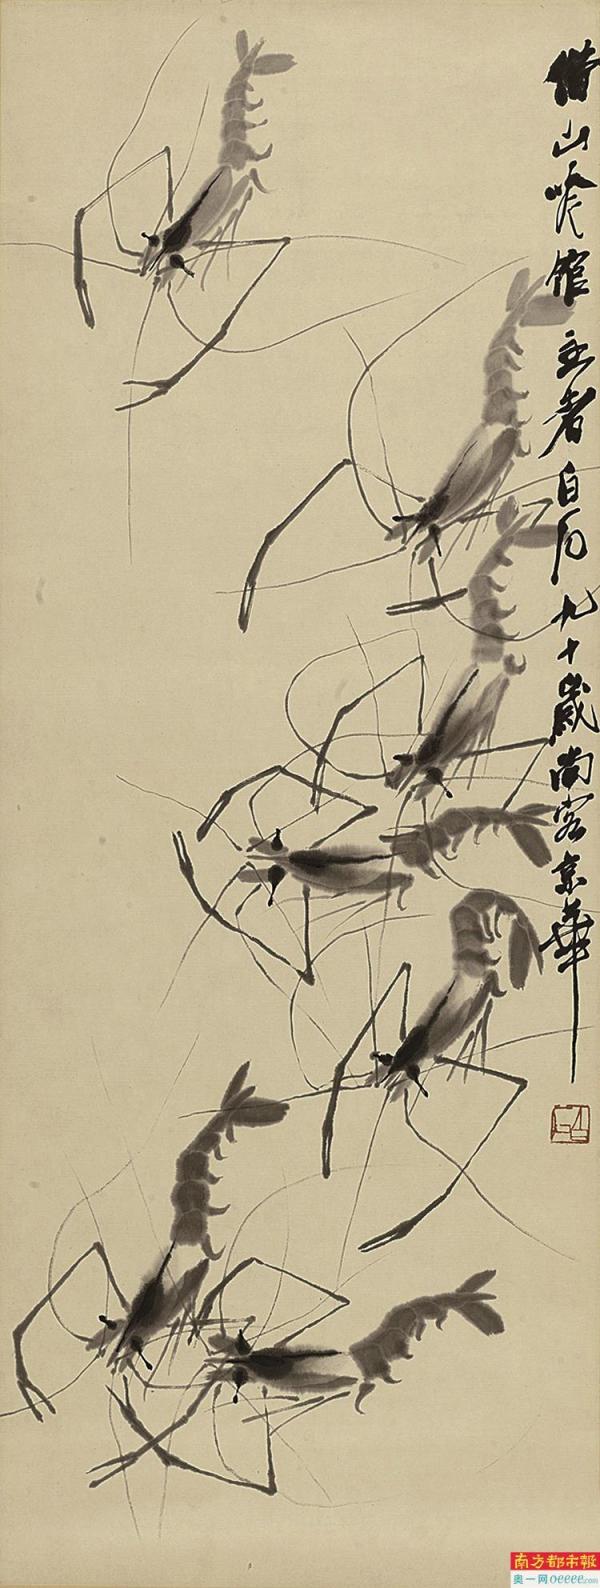 借山吟館主者白石九十歲尚客京華
南方都市報
奥一网oeeee.com